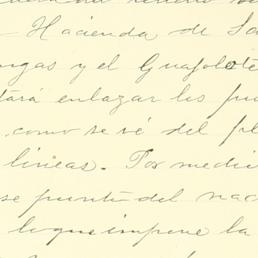 Hacienda de Sa
ngas y el Guajolote
tará enlazar los pu
como se vé del pl
lineas. Por medi
se punto del nac
lo que impone la